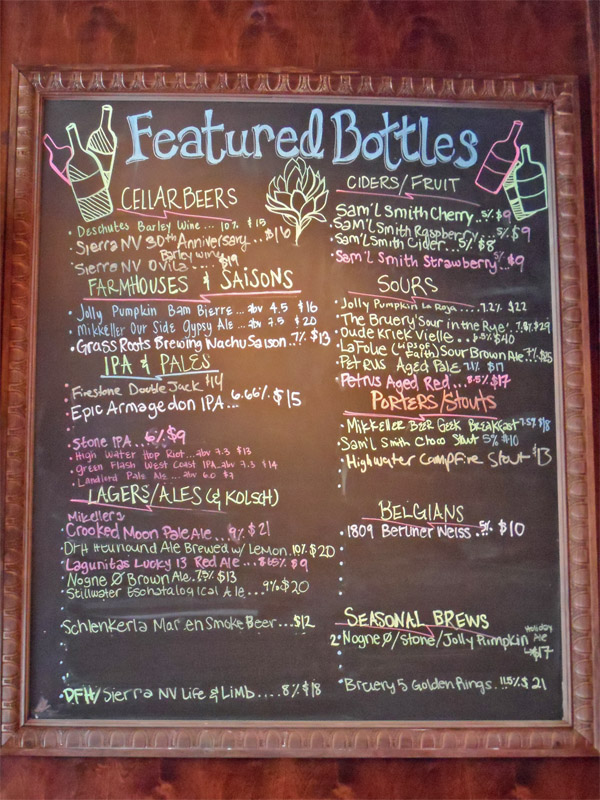 Featured Bottles
CELLAR BEERS
Deschutes Barley Wine... 10% $15
Sierra NV 30th Anniversary... $16
Barley wine
Sierra NV Ovila... $19
FARMHOUSES & SAISONS
Jolly Pumpkin Bam Bierre... abv 4.5 $16
Mikkeller Our Side Gypsy Ale... abv 7.5 $20
Grass Roots Brewing Wachu Saison. 7% $13
IPA & PALES
Firestone Double Jack $14
Epic Armagedon IPA... 6.66% $15
Stone IPA... 6% $9
High Water Hop Riot... abv 7.3 $13
Green Flash West Coast IPA...abv 7.3 $14
Landlord Pale Ale... abv 6.0 $7
LAGERS/ALES (& KOLSCH)
Mikellers
Crooked Moon Pale Ale... 9% $21
DFH Hellhound Ale Brewed w/ Lemon. 10% $20
Lagunitas Lucky 13 Red Ale... $9
Nogne Ø Brown Ale. 7.5% $13
Stillwater Eschatalogical Ale... 9% $20
Schlenkerla Marzen Smoke Beer... $12
DFH/Sierra NV Life & Limb.... 8% $18
CIDERS/FRUIT
Sam'l Smith Cherry. 5% $9
Sam'l Smith Raspberry... 5% $9
Sam'l Smith Cider... 5% $8
Sam'l Smith Strawberry 5% $9
SOURS
Jolly Pumpkin La Roja.... 7.2% $22
The Bruery 'Sour in the Rye'. 7.8% $29
Oude Kriek Vielle... $40
La Folie (Lips of Faith) Sour Brown Ale. 7% $25
Petrus Aged Pale 7.1% $17
Petrus Aged Red... 8.5% $17
PORTERS/STOUTS
Mikkeller Beer Geek Breakfast 7.5% $18
Sam'l Smith Choco Stout 5% $10
Highwater Campfire Stout $13
BELGIANS
1809 Berliner Weiss. 5% $10
SEASONAL BREWS
Nogne Ø/Stone/Jolly Pumpkin Holiday Ale
$17
Bruery 5 Golden Rings.. 11.5% $21